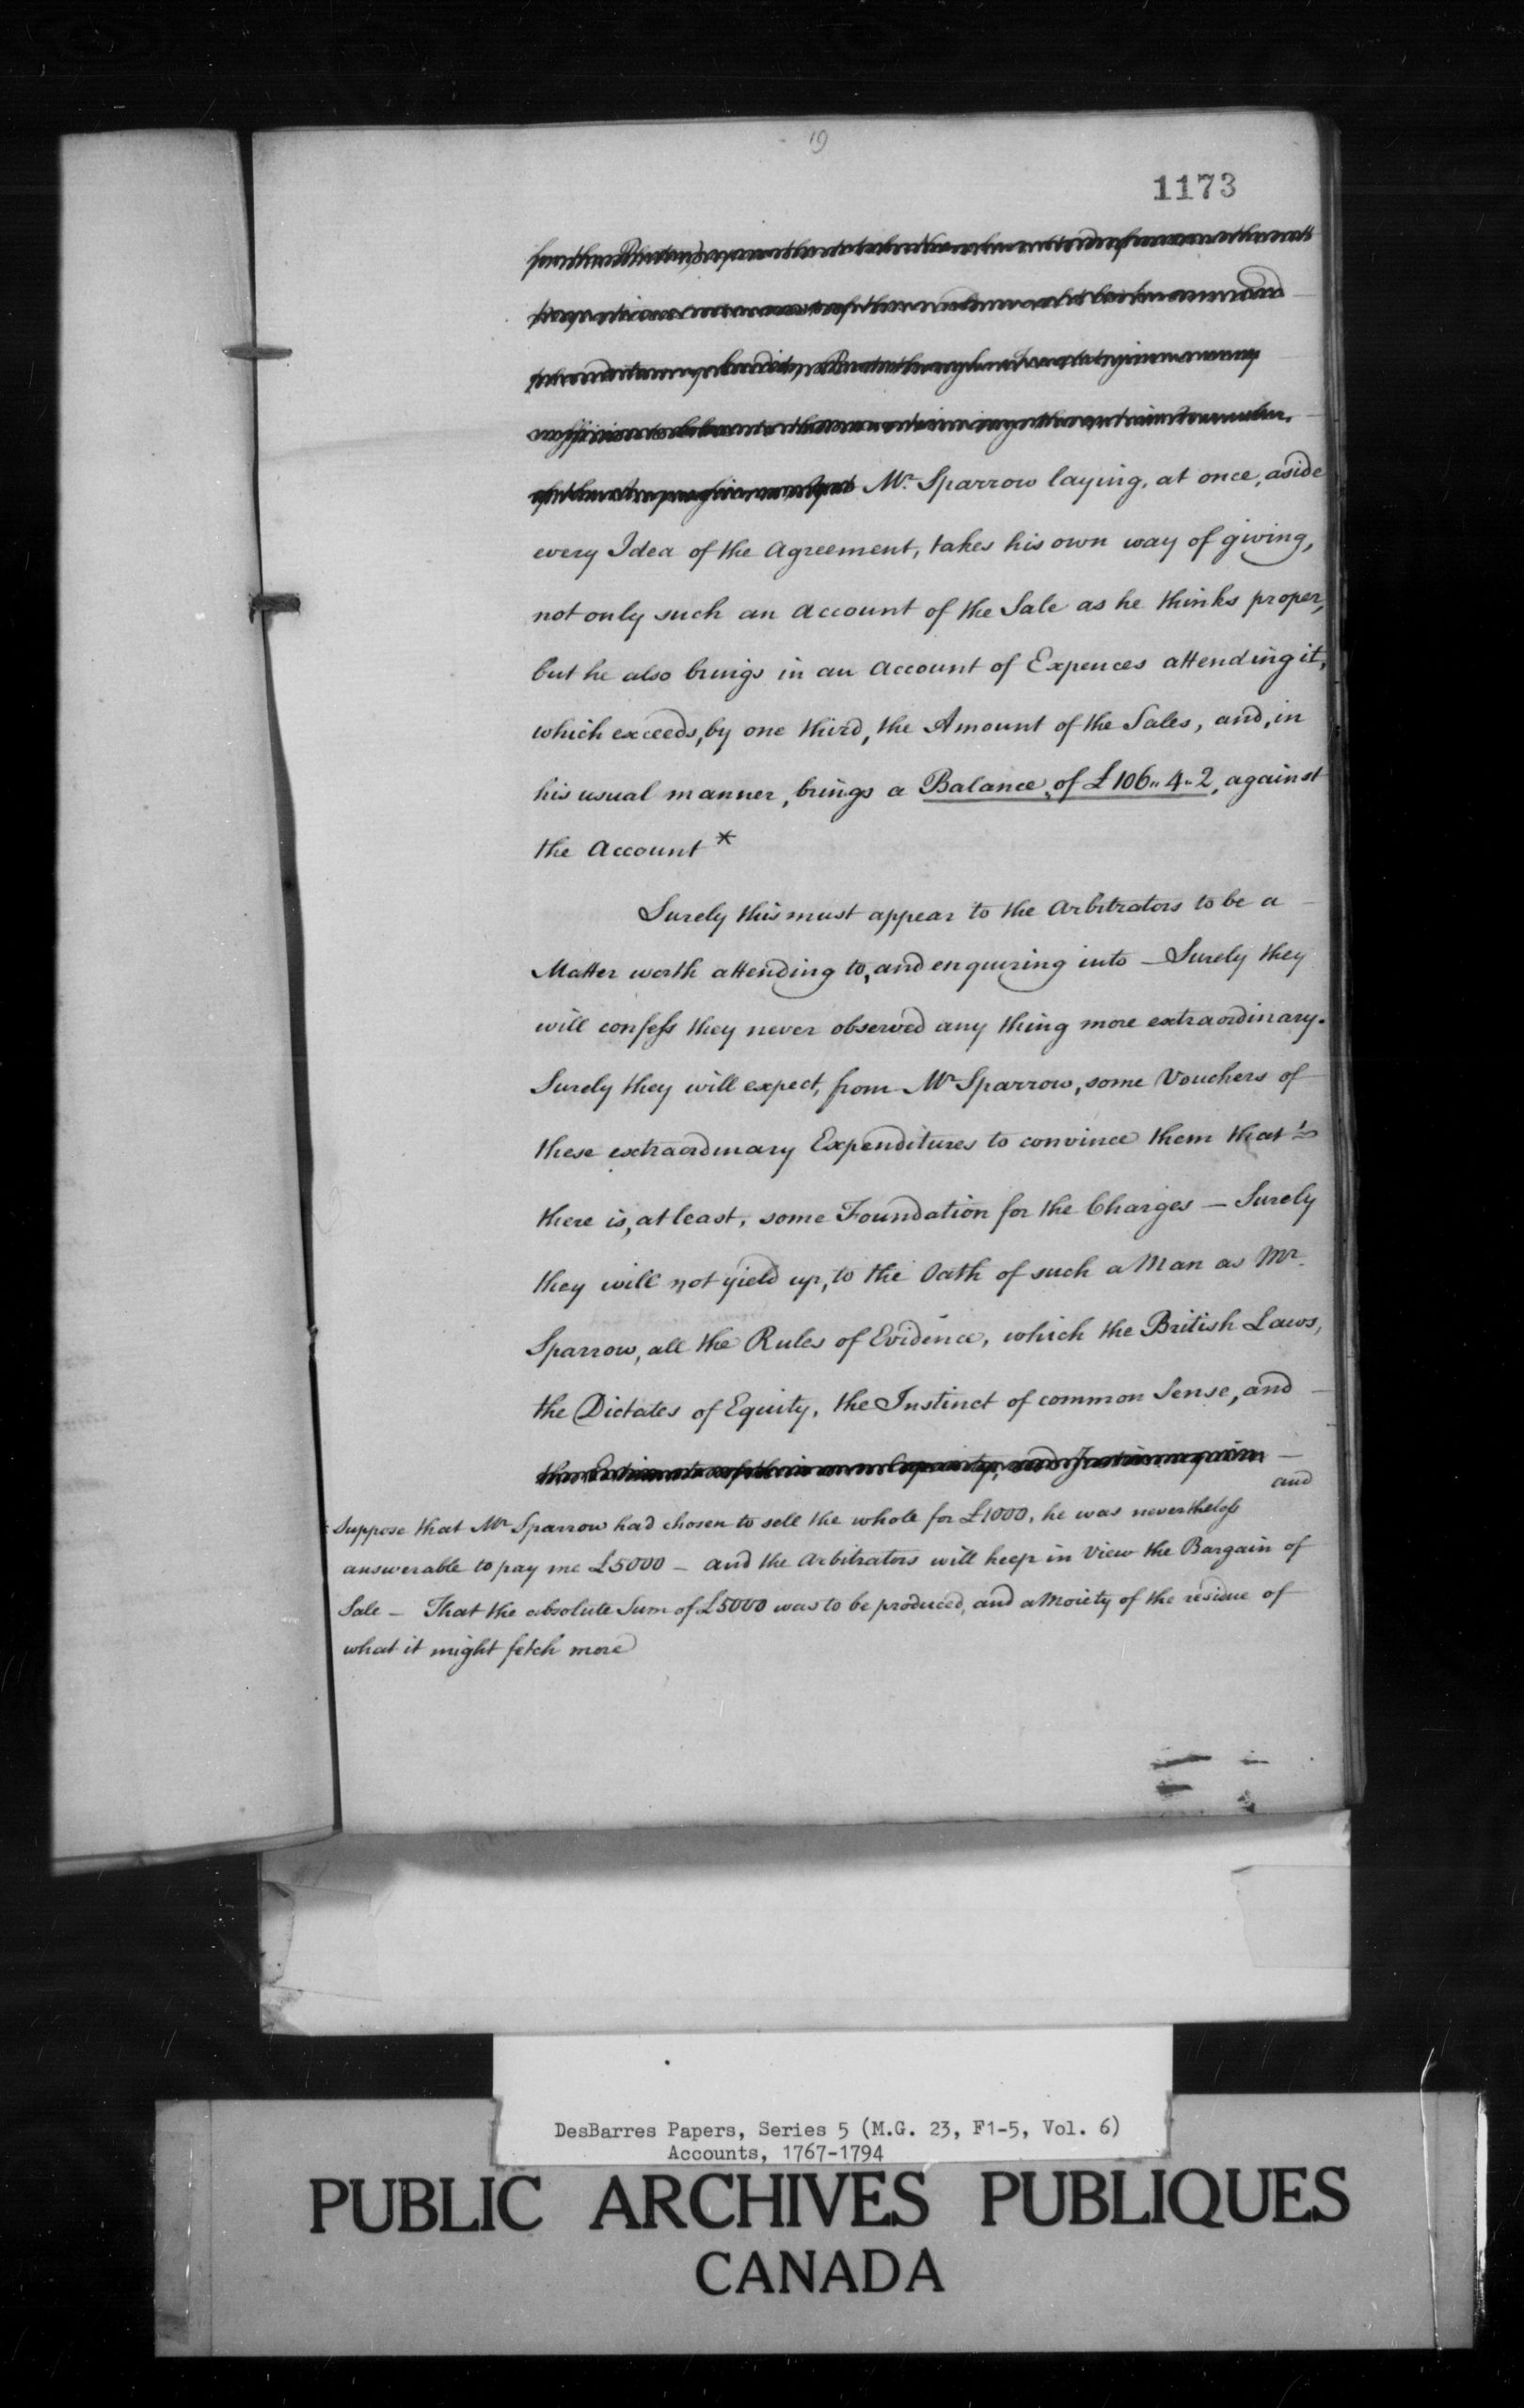 19
1173
Mr. Sparrow laying, at once, aside
every Idea of the Agreement, takes his own way of giving,
not only such an Account of the Sale as he thinks proper,
but he also brings in an Account of Expences attending it,
which exceeds, by one third, the Amount of the Sales, and, in
his usual manner, brings a Balance, of £106,, 4,, 2, against
the Account *
Surely this must appear to the Arbitrators to be a
Matter worth attending to, and enquiring into — Surely they
will confess they never observed any thing more extraordinary.
Surely they will expect, from Mr Sparrow, some Vouchers of
these extraordinary Expenditures to convince them that
there is, at least, some Foundation for the Charges — Surely
they will not yield up, to the Oath of such a Man as Mr.
Sparrow, all the Rules of Evidence, which the British Laws,
the Dictates of Equity, the Instinct of common Sense, and —
and
* Suppose that Mr Sparrow had chosen to sell the whole for £1000, he was nevertheless
answerable to pay me £5000 — and the Arbitrators will keep in View the Bargain of
Sale — That the absolute Sum of £5000 was to be produced, and a Moiety of the residue of
what it might fetch more
DesBarres Papers, Series 5 (M.G. 23, F1-5, Vol. 6)
Accounts, 1767-1794
PUBLIC ARCHIVES PUBLIQUES
CANADA